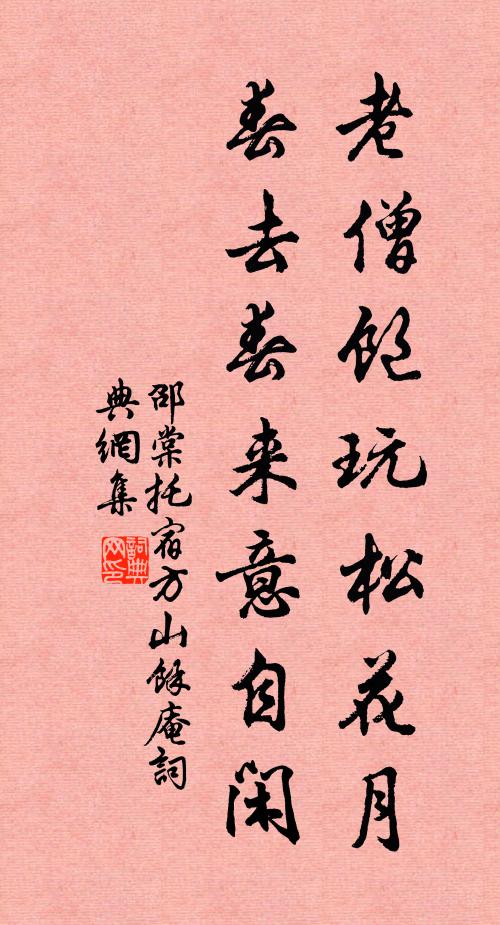 老僧飽玩松花月
春去春来意自閑
邵棠托宿方山餘庵詞
典網集
詞典網印